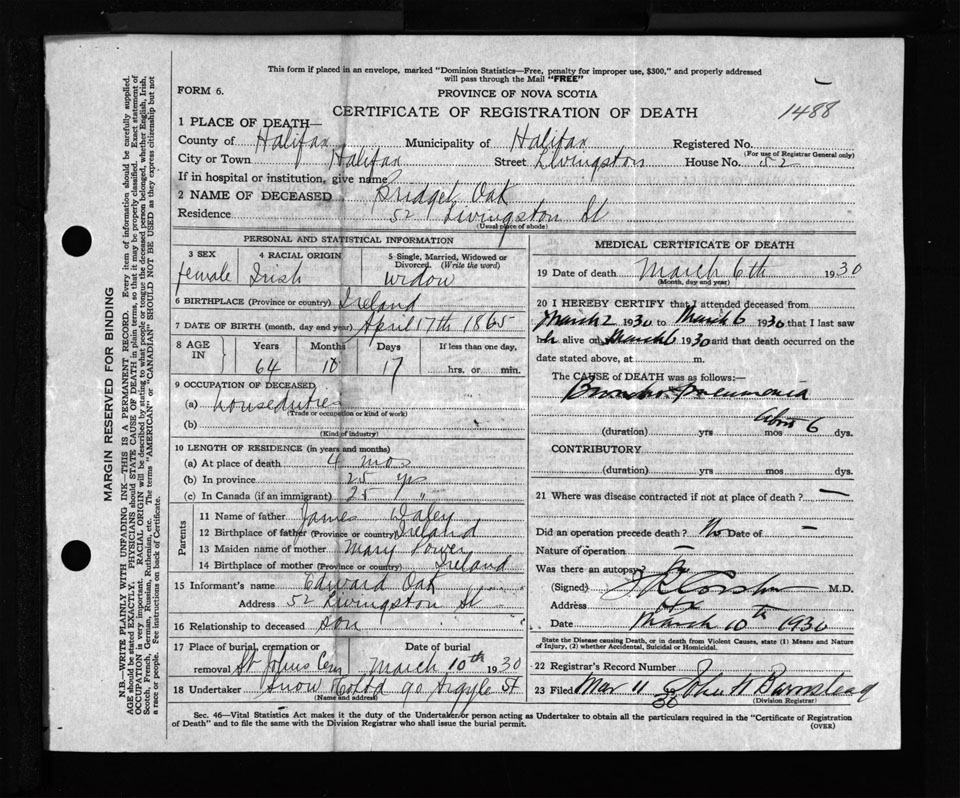 This form if placed in an envelope, marked "Dominion Statistics—Free, penalty for improper use, $300," and properly addressed
will pass through the Mail "FREE"
FORM 6.
PROVINCE OF NOVA SCOTIA
CERTIFICATE OF REGISTRATION OF DEATH
1488
1 PLACE OF DEATH—
County of Halifax Municipality of Halifax Registered No.
(For use of Registrar General only)
City or Town Halifax Street Livingston House No. 52
If in hospital or institution, give name
2 NAME OF DECEASED Bridget Oak
Residence 52 Livingston St
(Usual place of abode)
MARGIN RESERVED FOR BINDING
N.B.—WRITE PLAINLY WITH UNFADING INK—THIS IS A PERMANENT RECORD. Every item of information should be carefully supplied.
AGE should be stated EXACTLY. PHYSICIANS should STATE CAUSE OF DEATH in plain terms, so that it may be properly classified. Exact statement of
OCCUPATION is very important. RACIAL ORIGIN will be described by stating to what people or tongue the deceased person belonged, whether English, Irish,
Scotch, French, German, Russian, Ruthenian, etc. The terms "AMERICAN" or "CANADIAN" SHOULD NOT BE USED as they express citizenship but not
a race or people. See instructions on back of Certificate.
PERSONAL AND STATISTICAL INFORMATION
3 SEX 4 RACIAL ORIGIN 5 Single, Married, Widowed or
Divorced. (Write the word)
female Irish widow
6 BIRTHPLACE (Province or country) Ireland
7 DATE OF BIRTH (month, day and year) April 17th 1865
8 AGE IN Years Months Days If less than one day,
64 10 17 hrs. or min.
9 OCCUPATION OF DECEASED
(a) houseduties
(Trade or occupation or kind of work)
(b)
(Kind of industry)
10 LENGTH OF RESIDENCE (in years and months)
(a) At place of death 4 mos
(b) In province 25 yrs
(c) In Canada (if an immigrant) 25 "
Parents
11 Name of father James Daley
12 Birthplace of father (Province or country) Ireland
13 Maiden name of mother Mary Power
14 Birthplace of mother (Province or country) Ireland
15 Informant's name Edward Oak
Address 52 Livingston St
16 Relationship to deceased son
17 Place of burial, cremation or Date of burial
removal St Johns Cem March 10th 1930
18 Undertaker Snow 90 Argyle St
(Name and address)
MEDICAL CERTIFICATE OF DEATH
19 Date of death March 6th 1930
(Month, day and year)
20 I HEREBY CERTIFY that I attended deceased from
March 2 1930 to March 6 1930 that I last saw
h alive on March 6 1930 and that death occurred on the
date stated above, at m.
The CAUSE of DEATH was as follows:—
Broncho-pneumonia
(duration) yrs mos 6 dys.
CONTRIBUTORY
(duration) yrs mos dys.
21 Where was disease contracted if not at place of death? —
Did an operation precede death? No Date of —
Nature of operation —
Was there an autopsy?
(Signed) M.D.
Address
Date March 10th 1930
State the Disease causing Death, or in death from Violent Causes, state (1) Means and Nature
of Injury, (2) whether Accidental, Suicidal or Homicidal.
22 Registrar's Record Number
23 Filed Mar 11 John H Barnstead
(Division Registrar)
Sec. 46—Vital Statistics Act makes it the duty of the Undertaker or person acting as Undertaker to obtain all the particulars required in the "Certificate of Registration
of Death" and to file the same with the Division Registrar who shall issue the burial permit.
(OVER)